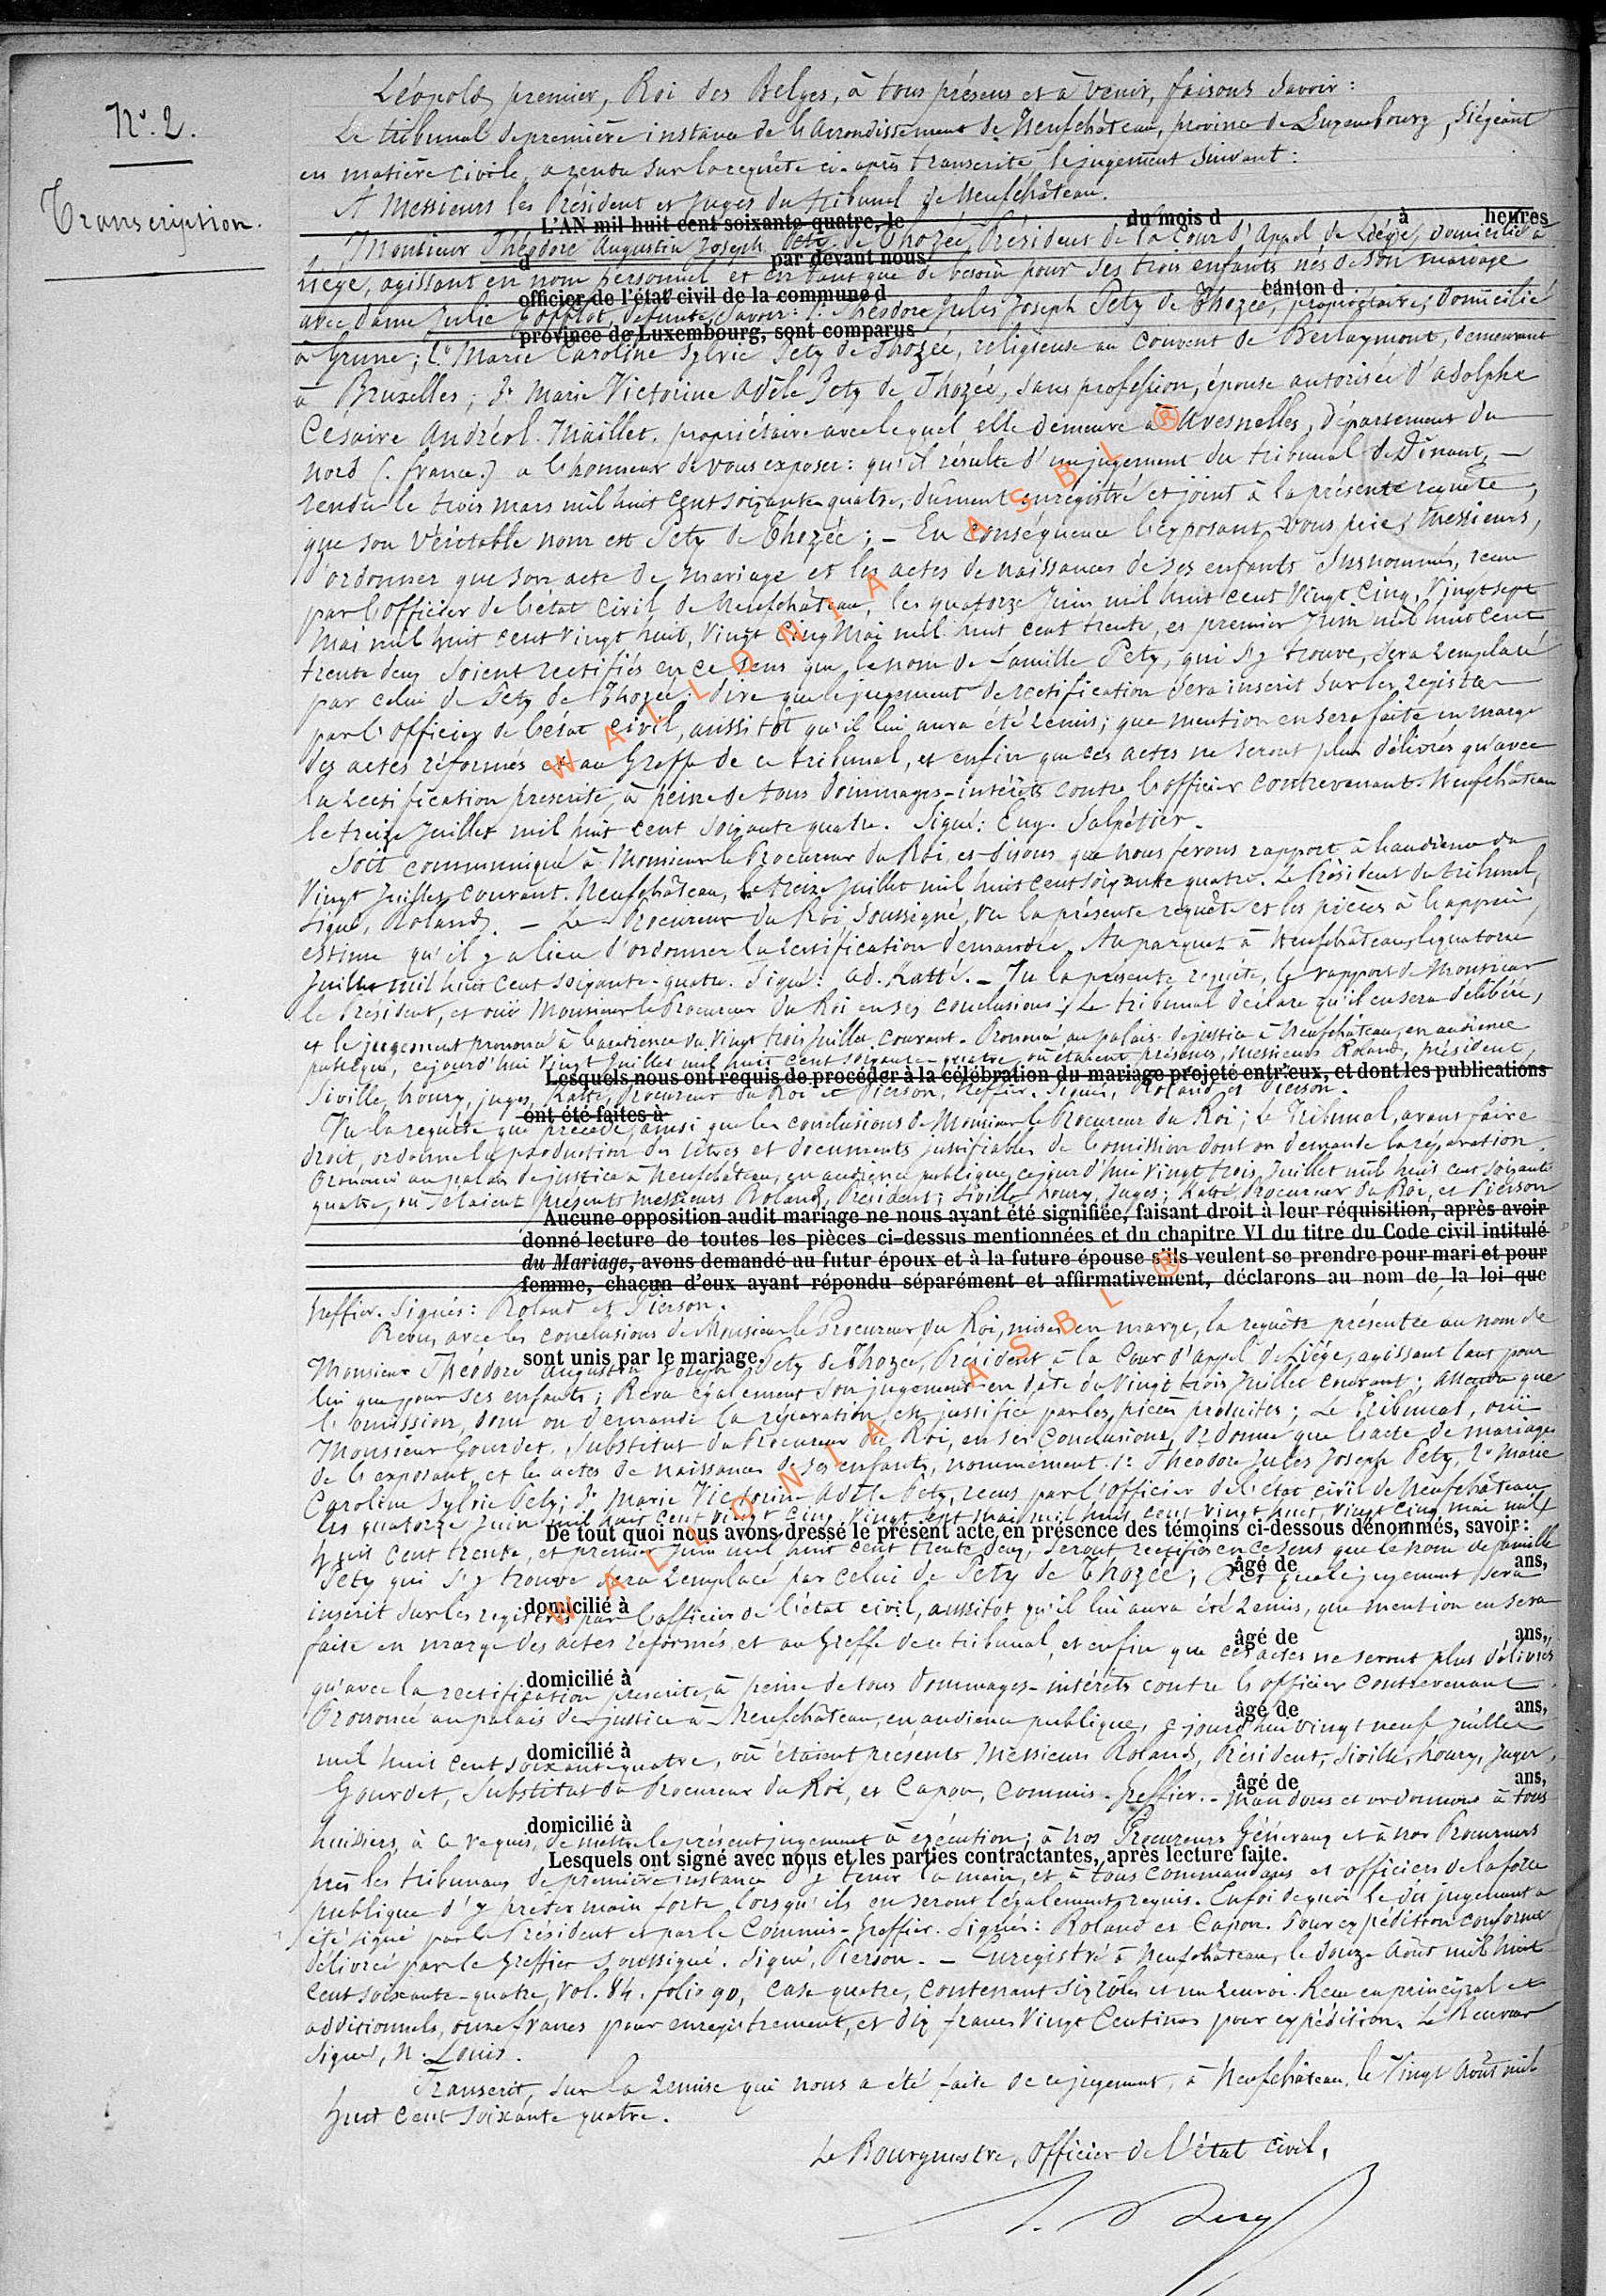 N°. 2.
Transcription.
Léopold premier, Roi des Belges, à tous présens et à venir, faisons savoir :
Le tribunal de première instance de l'arrondissement de Neufchâteau, province de Luxembourg, siégeant
en matière civile, a rendu sur la requête ci-après transcrite, le jugement suivant :
A Messieurs les Président et Juges du tribunal de Neufchâteau.
L'AN mil huit cent soixante-quatre, le du mois d à heures
Monsieur Théodore Augustin Joseph Pety de Thozée, Président de la Cour d'Appel de Liége, domicilié à
d par devant nous
Liége, agissant en nom personnel et en tant que de besoin pour ses trois enfants nés de son mariage
officier de l'état civil de la commune d canton d
avec dame Julie défunte, savoir : 1° Théodore Jules Joseph Pety de Thozée, propriétaire, domicilié
province de Luxembourg, sont comparus
à Grune ; 2° Marie Caroline Sylvie Pety de Thozée, religieuse au couvent de Berlaymont, demeurant
à Bruxelles ; 3° Marie Victorine Adèle Pety de Thozée, sans profession, épouse autorisée d'Adolphe
Césaire Andréol Maillet, propriétaire avec lequel elle demeure à Avesnelles, département du
nord (france.) a l'honneur de vous exposer : qu'il résulte d'un jugement du tribunal de Dinant, —
rendu le trois mars mil huit cent soixante quatre, dûment enregistré et joint à la présente requête,
que son véritable nom est Pety de Thozée ; — En conséquence l'exposant vous prie, Messieurs,
d'ordonner que son acte de mariage et les actes de naissances de ses enfants susnommés, reçus
par l'officier de l'état civil de Neufchâteau, les quatorze Juin mil huit cent vingt cinq, vingt sept
Mai mil huit cent vingt huit, vingt cinq Mai mil huit cent trente, et premier Juin mil huit cent
trente deux soient rectifiés en ce sens que le nom de famille Pety, qui s'y trouve, sera remplacé
par celui de Pety de Thozée ; dire que le jugement de rectification sera inscrit sur les registres
par l'officier de l'état civil, aussitôt qu'il lui aura été remis ; que mention en sera faite en marge
des actes réformés et au Greffe de ce tribunal, et enfin que ces actes ne seront plus délivrés qu'avec
la rectification prescrite, à peine de tous dommages-intérêts contre l'officier contrevenant. Neufchâteau
le treize Juillet mil huit cent soixante quatre. Signé : Eug. Salpétier.
Soit communiqué à Monsieur le Procureur du Roi, et disons que nous ferons rapport à l'audience du
vingt Juillet courant. Neufchâteau, le treize Juillet mil huit cent soixante quatre. Le Président du tribunal,
signé, Roland. — Le Procureur du Roi soussigné, vu la présente requête et les pièces à l'appui,
estime qu'il y a lieu d'ordonner la rectification demandée. Au parquet à Neufchâteau, le quatorze
Juillet mil huit cent soixante-quatre. Signé : Ad. Katté. — Vu la présente requête, le rapport de Monsieur
le Président, et ouï Monsieur le Procureur du Roi en ses conclusions ; Le tribunal déclare qu'il en sera délibéré,
et le jugement prononcé à l'audience du vingt trois Juillet courant. Prononcé au palais de justice à Neufchâteau, en audience
publique, cejourd'hui vingt Juillet mil huit cent soixante-quatre, où étaient présents, Messieurs Roland, président,
Lesquels nous ont requis de procéder à la célébration du mariage projeté entr'eux, et dont les publications
Siville, houry, juges, Katté, Procureur du Roi et Pierson, Greffier. Signés, Roland et Pierson.
ont été faites à
Vu la requête qui précède, ainsi que les conclusions de Monsieur le Procureur du Roi ; Le Tribunal, avant faire
droit, ordonne la production des titres et documents justifiables de l'omission dont on demande la réparation.
Prononcé au palais de justice à Neufchâteau, en audience publique, cejourd'hui vingt trois Juillet mil huit cent soixante
quatre, où étaient présents Messieurs Roland, Président ; Siville, houry, Juges ; Katté, Procureur du Roi, et Pierson
Aucune opposition audit mariage ne nous ayant été signifiée, faisant droit à leur réquisition, après avoir
donné lecture de toutes les pièces ci-dessus mentionnées et du chapitre VI du titre du Code civil intitulé
du Mariage, avons demandé au futur époux et à la future épouse s'ils veulent se prendre pour mari et pour
femme, chacun d'eux ayant répondu séparément et affirmativement, déclarons au nom de la loi que
Greffier. Signés : Roland et Pierson.
Revu, avec les conclusions de Monsieur le Procureur du Roi, mises en marge, la requête présentée au nom de
sont unis par le mariage.
Monsieur Théodore Augustin Joseph Pety de Thozée, Président à la Cour d'appel de Liége, agissant tant pour
lui que pour ses enfants ; Revu également son jugement en date du vingt trois Juillet courant ; Attendu que
l'omission, dont on demande la réparation, est justifiée par les pièces produites ; Le Tribunal, ouï
Monsieur Gourdet, Substitut du Procureur du Roi, en ses conclusions, Ordonne que l'acte de mariage
de l'exposant, et les actes de naissances de ses enfants, nommément : 1° Théodore Jules Joseph Pety, 2° Marie
Caroline Sylvie Pety ; 3° Marie Victorine Adèle Pety, reçus par l'officier de l'état civil de Neufchâteau
les quatorze Juin mil huit cent vingt cinq, vingt sept mai mil huit cent vingt huit, vingt cinq mai mil
De tout quoi nous avons dressé le présent acte, en présence des témoins ci-dessous dénommés, savoir :
huit cent trente, et premier Juin mil huit cent trente deux, seront rectifiés en ce sens que le nom de famille
âgé de ans,
Pety qui s'y trouve sera remplacé par celui de Pety de Thozée ; que le jugement sera
domicilié à
inscrit sur les registres par l'officier de l'état civil, aussitôt qu'il lui aura été remis, que mention en sera
âgé de ans,
faite en marge des actes réformés, et au Greffe de ce tribunal, et enfin que ces actes ne seront plus délivrés
domicilié à
qu'avec la rectification prescrite, à peine de tous dommages-intérêts contre l'officier contrevenant
âgé de ans,
Prononcé au palais de justice à Neufchâteau, en audience publique, cejourd'hui vingt neuf Juillet
domicilié à
mil huit cent soixante quatre, où étaient présents Messieurs Roland, Président, Siville, houry, Juges,
âgé de ans,
Gourdet, Substitut du Procureur du Roi, et Capon, Commis-Greffier. — Mandons et ordonnons à tous
domicilié à
huissiers, à ce requis, de mettre le présent jugement à exécution ; à nos Procureurs Généraux et à nos Procureurs
Lesquels ont signé avec nous et les parties contractantes, après lecture faite.
près les tribunaux de première instance d'y tenir la main, et à tous commandants et officiers de la force
publique d'y prêter main forte, lorsqu'ils en seront légalement requis. En foi de quoi le dit jugement a
été signé par le Président et par le Commis-Greffier. Signés : Roland et Capon. Pour expédition conforme
délivrée par le Greffier soussigné. Signé, Pierson. — Enregistré à Neufchâteau, le douze Août mil huit
cent soixante-quatre, vol. 84. folio 90, case quatre, contenant six rôles et un renvoi. Reçu en principal et
additionnels, onze francs pour enregistrement, et dix francs vingt Centimes pour expédition. Le Receveur
signé, N. Louis.
Transcrit, sur la remise qui nous a été faite de ce jugement, à Neufchâteau, le vingt Août mil
huit cent soixante quatre.
Le Bourgmestre, Officier de l'état civil,
WALLONIA ASBL ®
WALLONIA ASBL ®